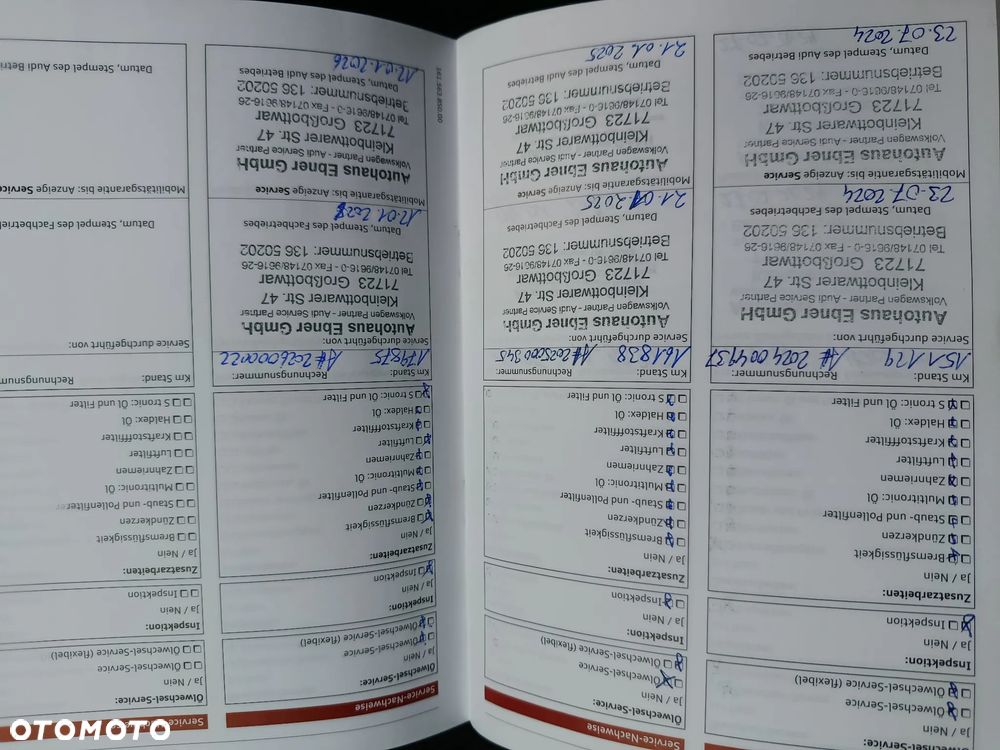 Ölwechsel-Service:
Ja / Nein
Ölwechsel-Service
Ölwechsel-Service (flexibel)
Inspektion:
Ja / Nein
Inspektion
Zusatzarbeiten:
Ja / Nein
Bremsflüssigkeit
Zündkerzen
Staub- und Pollenfilter
Multitronic: Öl
Zahnriemen
Luftfilter
Kraftstofffilter
Haldex: Öl
S tronic: Öl und Filter
Km Stand: Rechnungsnummer:
151129 A# 2024004937
Service durchgeführt von:
Autohaus Ebner GmbH
Volkswagen Partner - Audi Service Partner
Kleinbottwarer Str. 47
71723 Großbottwar
Tel 07148/9616-0 - Fax 07148/9616-26
Betriebsnummer: 136 50202
Datum, Stempel des Fachbetriebes
23.07.2024
Mobilitätsgarantie bis: Anzeige Service
Autohaus Ebner GmbH
Volkswagen Partner - Audi Service Partner
Kleinbottwarer Str. 47
71723 Großbottwar
Tel 07148/9616-0 - Fax 07148/9616-26
Betriebsnummer: 136 50202
Datum, Stempel des Audi Betriebes
23.07.2024
Service-Nachweise
Ölwechsel-Service:
Ja / Nein
Ölwechsel-Service
Ölwechsel-Service (flexibel)
Inspektion:
Ja / Nein
Inspektion
Zusatzarbeiten:
Ja / Nein
Bremsflüssigkeit
Zündkerzen
Staub- und Pollenfilter
Multitronic: Öl
Zahnriemen
Luftfilter
Kraftstofffilter
Haldex: Öl
S tronic: Öl und Filter
Km Stand: Rechnungsnummer:
161838 A# 2025000345
Service durchgeführt von:
Autohaus Ebner GmbH.
Volkswagen Partner - Audi Service Partner
Kleinbottwarer Str. 47
71723 Großbottwar
Tel 07148/9616-0 - Fax 07148/9616-26
Betriebsnummer: 136 50202
Datum, Stempel des Fachbetriebes
21.01.2025
Mobilitätsgarantie bis: Anzeige Service
Autohaus Ebner GmbH
Volkswagen Partner - Audi Service Partner
Kleinbottwarer Str. 47
71723 Großbottwar
Tel 07148/9616-0 - Fax 07148/9616-26
Betriebsnummer: 136 50202
Datum, Stempel des Audi Betriebes
21.01.2025
Service-Nachweise
Ölwechsel-Service:
Ja / Nein
Ölwechsel-Service
Ölwechsel-Service (flexibel)
Inspektion:
Ja / Nein
Inspektion
Zusatzarbeiten:
Ja / Nein
Bremsflüssigkeit
Zündkerzen
Staub- und Pollenfilter
Multitronic: Öl
Zahnriemen
Luftfilter
Kraftstofffilter
Haldex: Öl
S tronic: Öl und Filter
Km Stand: Rechnungsnummer:
174875 A# 2026000022
Service durchgeführt von:
Autohaus Ebner GmbH.
Volkswagen Partner - Audi Service Partner
Kleinbottwarer Str. 47
71723 Großbottwar
Tel 07148/9616-0 - Fax 07148/9616-26
Betriebsnummer: 136 50202
Datum, Stempel des Fachbetriebes
12.01.202
Mobilitätsgarantie bis: Anzeige Service
Autohaus Ebner GmbH
Volkswagen Partner - Audi Service Partner
Kleinbottwarer Str. 47
71723 Großbottwar
Tel 07148/9616-0 - Fax 07148/9616-26
Betriebsnummer: 136 50202
Datum, Stempel des Audi Betriebes
12.01.2026
161.563.850.00
Service-Nachweise
Ölwechsel-Service:
Ja / Nein
Ölwechsel-Service
Ölwechsel-Service (flexibel)
Inspektion:
Ja / Nein
Inspektion
Zusatzarbeiten:
Ja / Nein
Bremsflüssigkeit
Zündkerzen
Staub- und Pollenfilter
Multitronic: Öl
Zahnriemen
Luftfilter
Kraftstofffilter
Haldex: Öl
S tronic: Öl und Filter
Km Stand: Rechnungsnummer
Service durchgeführt von:
Datum, Stempel des Fachbetriebes
Mobilitätsgarantie bis: Anzeige Service
Datum, Stempel des Audi Betriebes
OTOMOTO